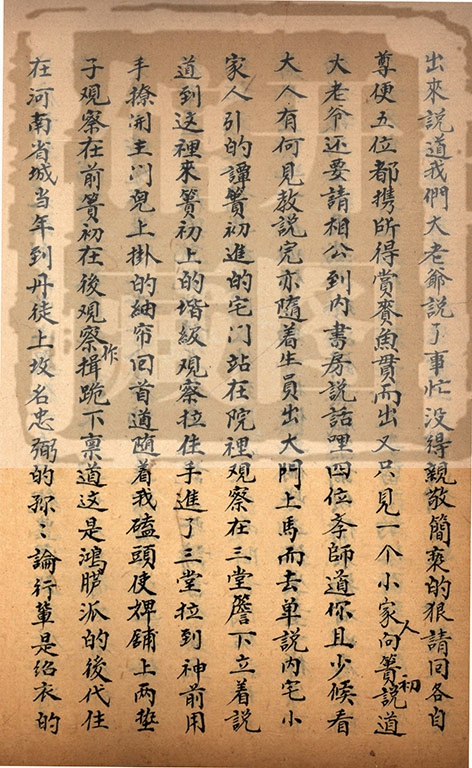 出來說道我們大老爺說了事忙没得親敬簡褻的狠請回各自
尊便五位都攜所得賞賚魚貫而出又只見一个小家人向簣初說道
大老爷还要請相公到内書房說話哩四位李師道你且少候看
大人有何見教說完亦隨着生員出大門上馬而去单說内宅小
家人引的譚簣初進的宅门站在院裡观察在三堂簷下立着說
道到这裡來簣初上的堦級观察拉住手進了三堂拉到神前用
手撩開主门兒上掛的紬帘回首道随着我磕頭使婢鋪上两墊
子观察在前簣初在後观察作揖跪下禀道这是鴻胪派的後代住
在河南省城当年到丹徒上坟名忠弼的孫〻論行輩是紹衣的